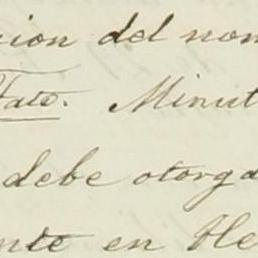 cion del nom
Fato. Minut
debe otorga
ente en He